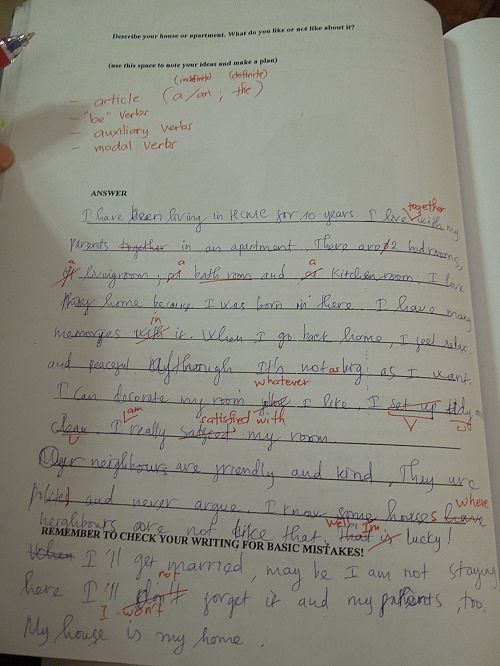 Describe your house or apartment. What do you like or not like about it?
(use this space to note your ideas and make a plan)
(indefinite) (definite)
- article (a/an ; the)
- "be" verbs
- auxiliary verbs
- modal verbs
ANSWER
together
I have been living in HCMC for 10 years. I live with my
parents together in an apartment. There are 2 bedrooms,
a a a
livingroom, bathroom and kitchen room. I love
my home because I was born in there. I have many
in
memories with it. When I go back home, I feel relax
and peaceful. Although It's not as big as I want,
whatever
I can decorate my room I like, I set up tidy
am satisfied with
clean I really my room
Our neighbours are friendly and kind. They are
where
polite and never argue. I know some houses have
Well! I'm
neighbours are not like that. That is lucky!
REMEMBER TO CHECK YOUR WRITING FOR BASIC MISTAKES!
When I'll get married, may be I am not staying
not
here I'll don't forget it and my parents, too.
I won't
My house is my home.